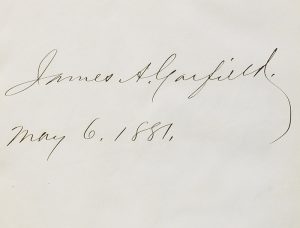 James A. Garfield.
May 6. 1881.